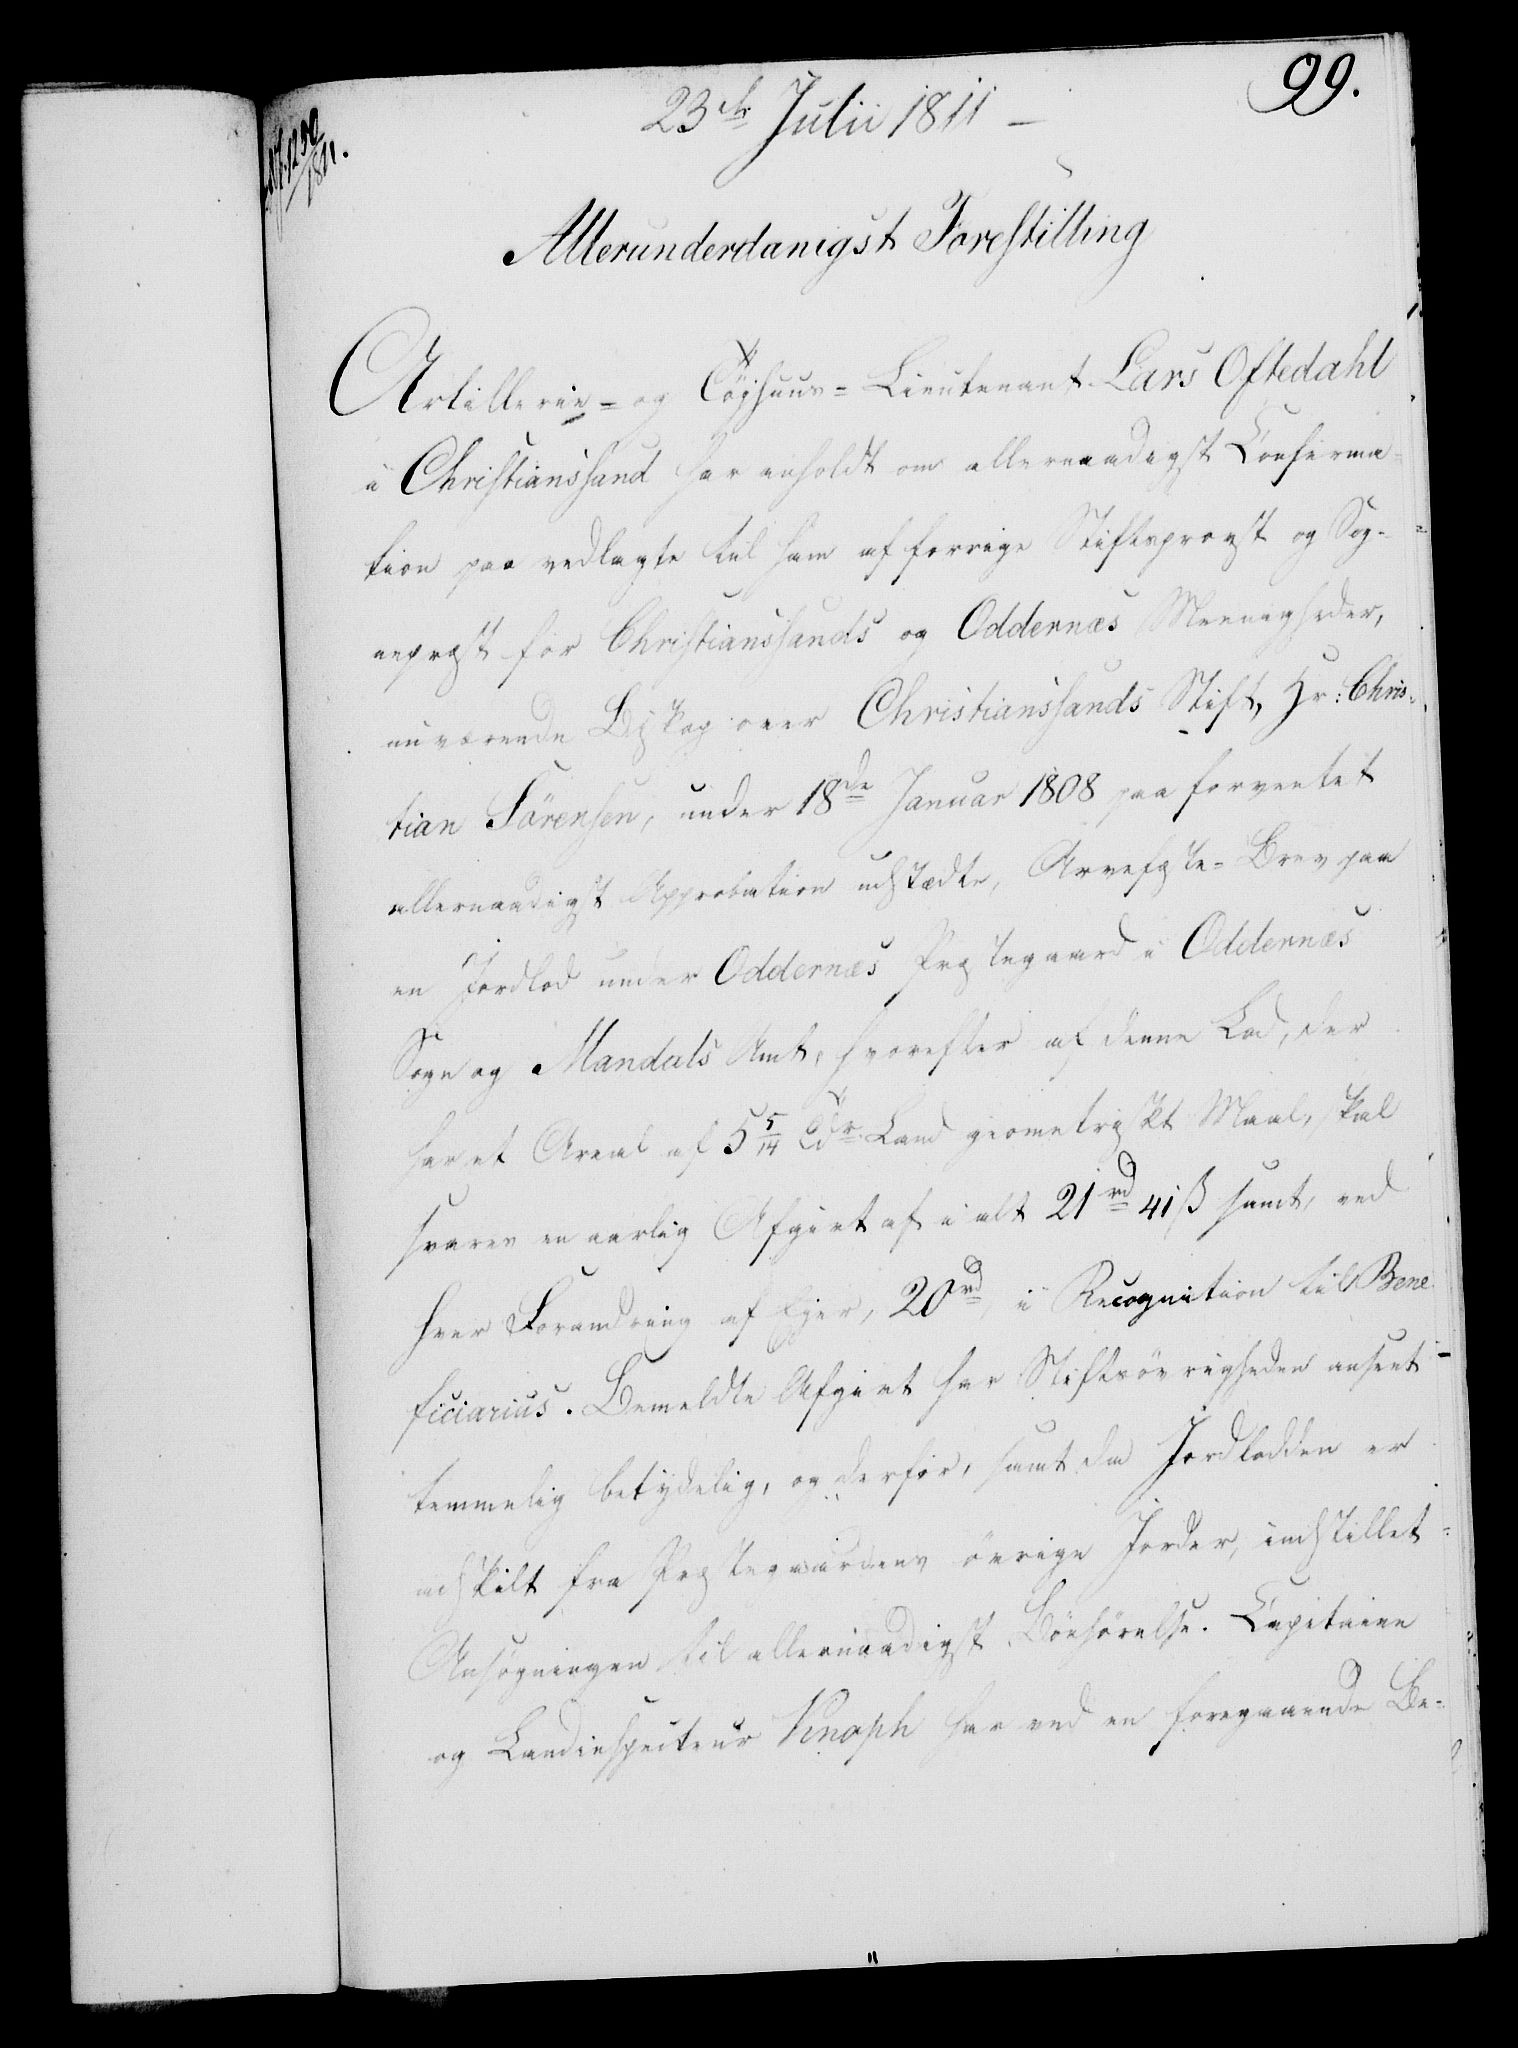 99.
23de Julii 1811 —
1250/1811.
Allerunderdanigst Forestilling
Artillerie- og Töyhuus- Lieutenant Lars Oftedahl
i Christianssand har anholdt om allernaadigst Confirma-
tion paa vedlagte til ham af forrige Stiftsprovst og Sog-
nepræst for Christianssands og Oddernæs Meenigheder,
nuværende Biskop over Christianssands Stift, Hr: Chris-
tian Sörensen, under 18de Januar 1808 paa forventet
allernaadigst Approbation udstædte, Arvefæste-Brev paa
en Jordlod under Oddernæs Præstegaard i Oddernæs
Sogn og Mandals Amt, hvorefter af denne Lod, der
har et Areal af 5 5/14 Tdr Land geometrisk Maal, skal
svares en aarlig Afgivt af i alt 21 rd 41 ß samt, ved
hver Forandring af Ejer, 20 rd i Recognition til Bene
ficiarius. Bemeldte Afgivt har Stiftsövrigheden anseet
temmelig betydelig, og derfor, samt da Jordlodden er
udskilt fra Præstegaardens övrige Jorder, indstillet
Ansögningen til allernaadigst Bönhörelse. Capitaine
og Landinspecteur Knoph har ved en foregaaende Be-